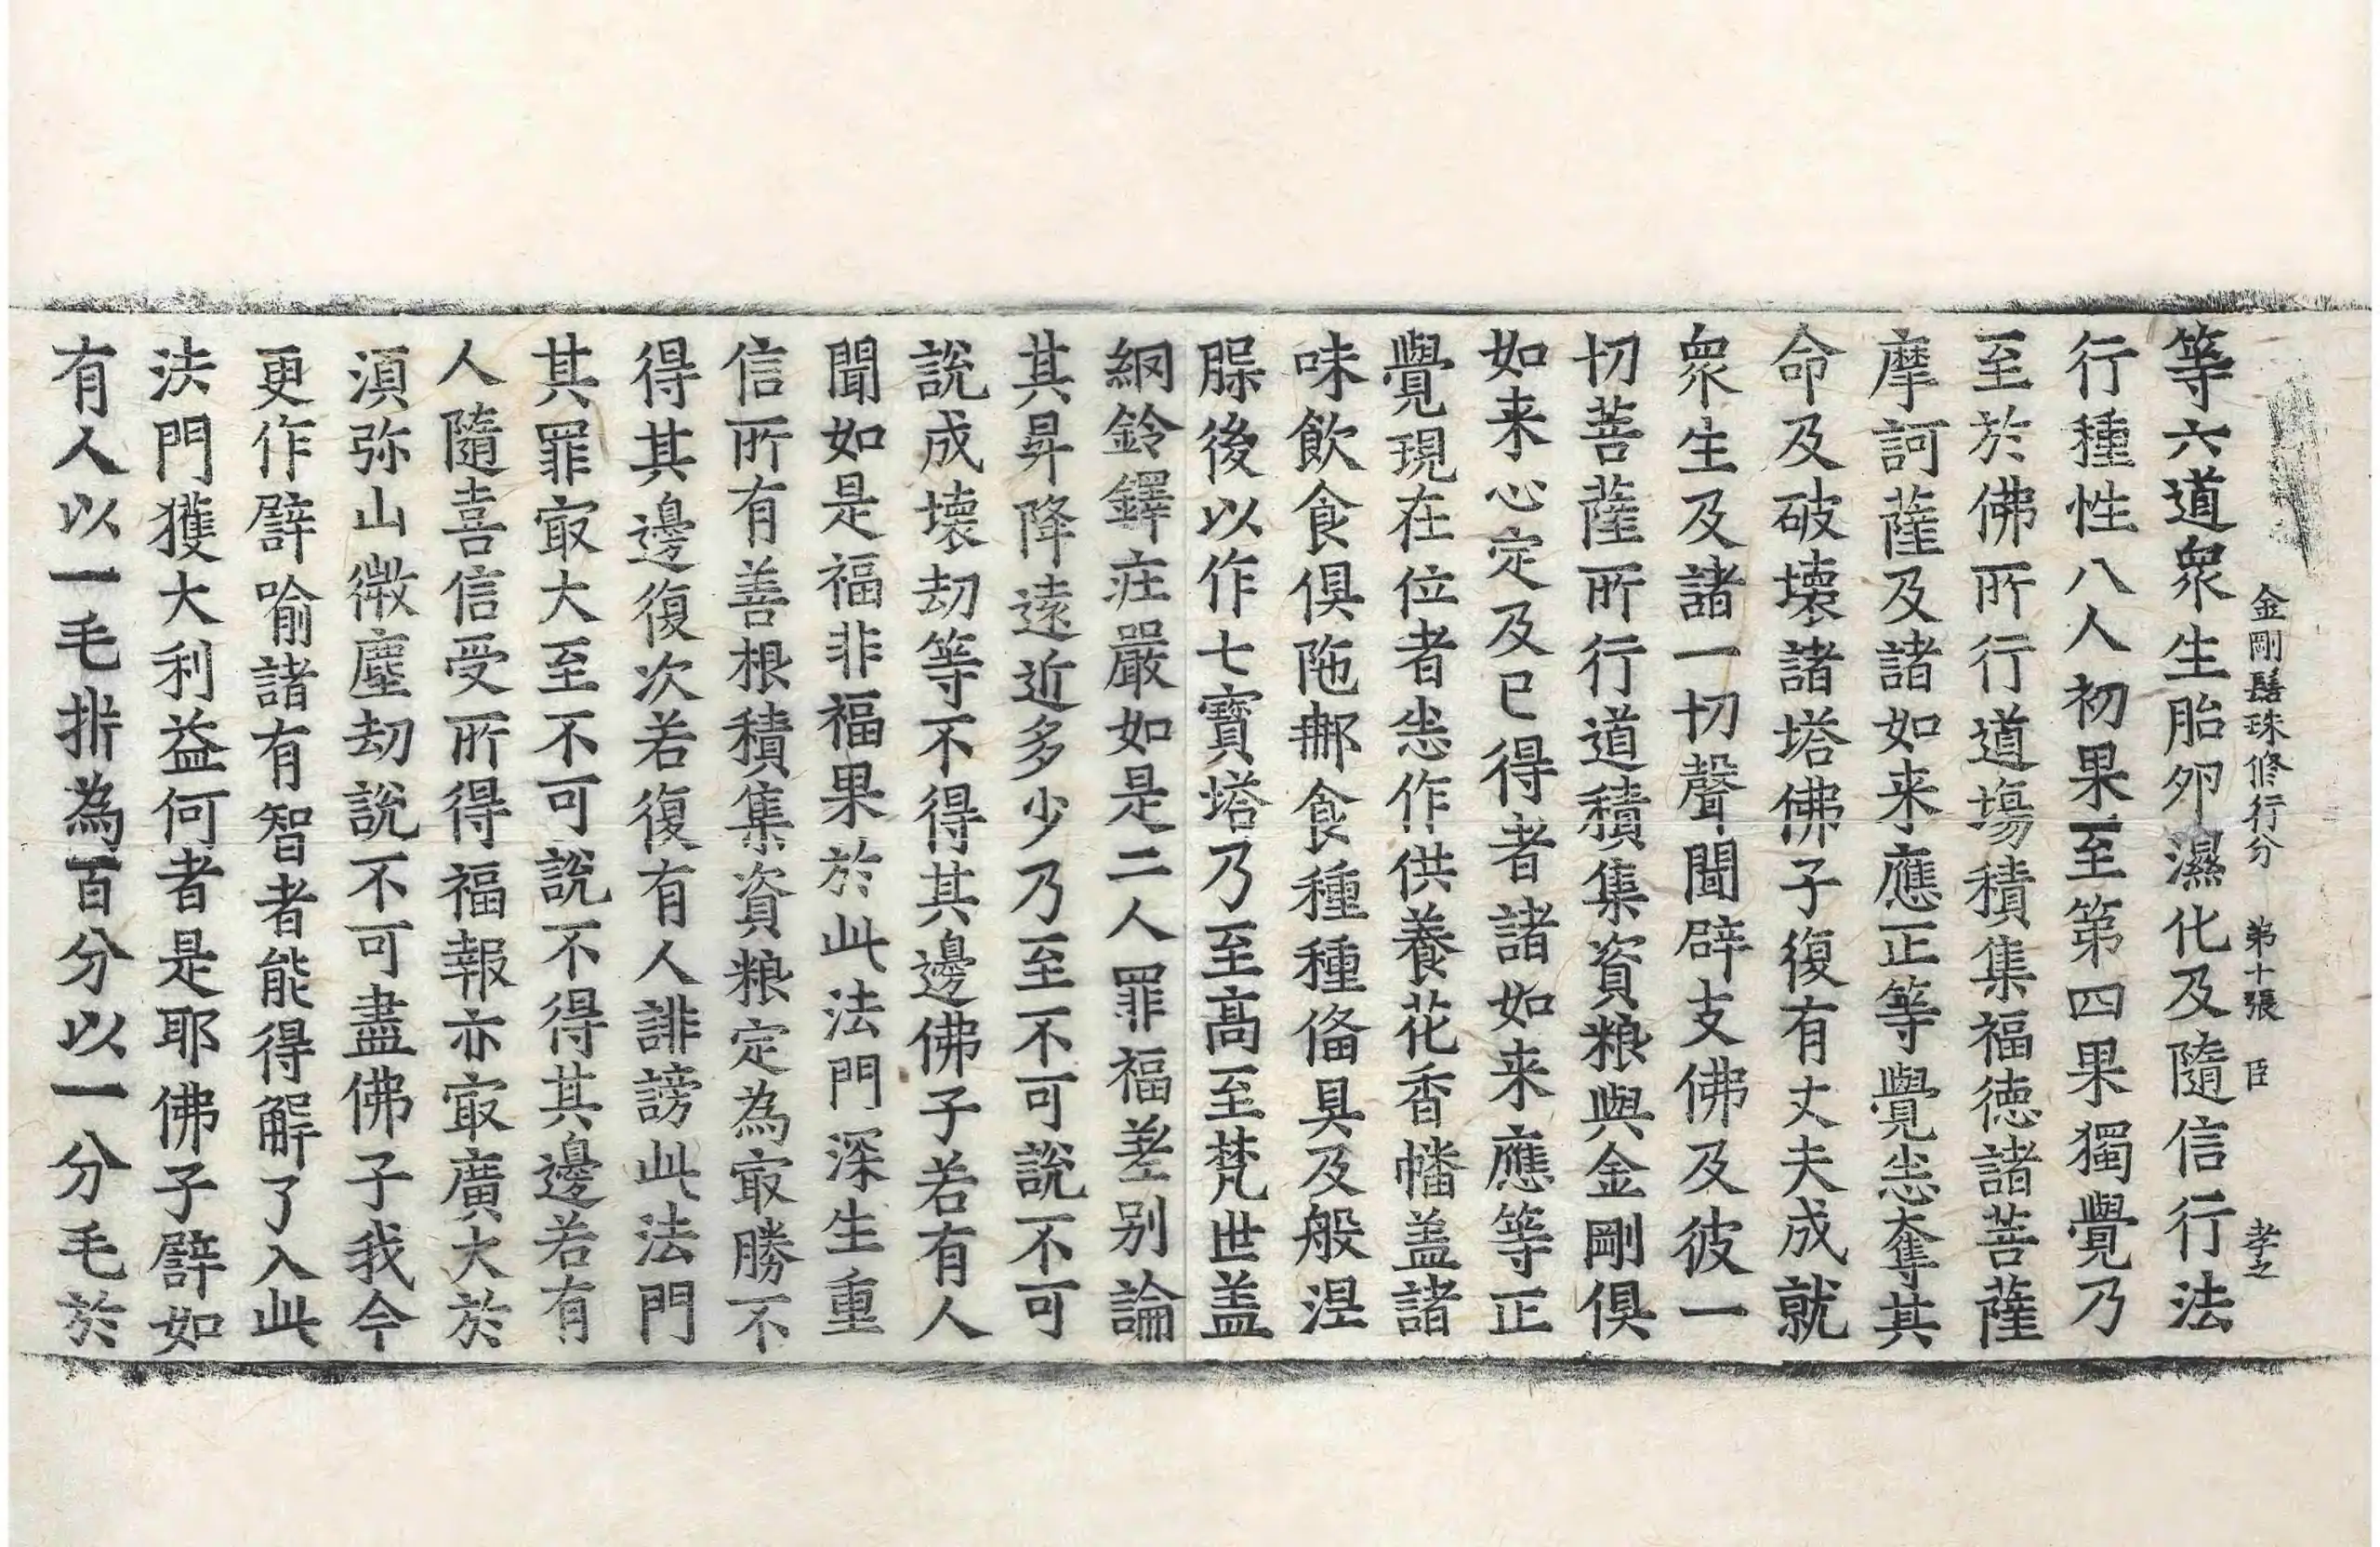 金剛髻珠修行分 第十張 臣 孝之
等六道衆生胎卵濕化及隨信行法
行種性八人初果至第四果獨覺乃
至於佛所行道場積集福德諸菩薩
摩訶薩及諸如来應正等覺悉奪其
命及破壞諸塔佛子復有丈夫成就
衆生及諸一切聲聞辟支佛及彼一
切菩薩所行道積集資粮與金剛俱
如来心定及已得者諸如来應等正
覺現在位者悉作供養花香幡盖諸
味飲食俱陁郍食種種俻具及般涅
腂後以作七寶塔乃至高至梵世盖
網鈴鐸莊嚴如是二人罪福差别論
其昇降遠近多少乃至不可說不可
說成壞劫等不得其邊佛子若有人
聞如是福非福果於此法門深生重
信所有善根積集資粮定為㝡勝不
得其邊復次若復有人誹謗此法門
其罪㝡大至不可說不得其邊若有
人隨喜信受所得福報亦㝡廣大於
湏弥山微塵劫說不可盡佛子我今
更作譬喻諸有智者能得解了入此
法門獲大利益何者是耶佛子譬如
有人以一毛㭊為百分以一分毛於